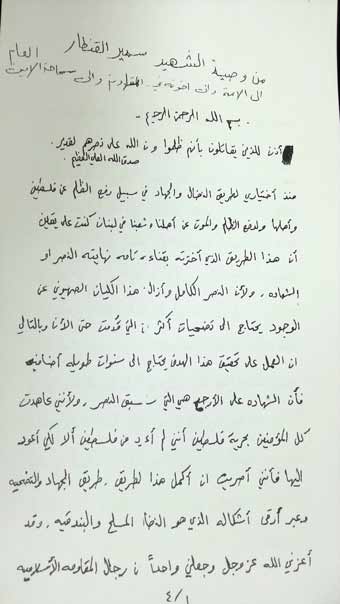 من وصية الشهيد سمير القنطار
الى الامة والى اخوته في المقاومة والى سماحة الامين العام
بسم الله الرحمن الرحيم -
أذن للذين يقاتلون بأنهم ظلموا وان الله على نصرهم لقدير.
صدق الله العلي العظيم
منذ أختياري لطريق النضال والجهاد في سبيل رفع الظلم عن فلسطين
وأهلها ولدفع الظلم والموت عن أهلنا وشعبنا في لبنان كنت على يقين
أن هذا الطريق الذي أخترته بقناعه تامه نهايته النصر او
الشهاده، ولأن النصر الكامل وأزالة هذا الكيان الصهيوني عن
الوجود يحتاج الى تضحيات أكثر من التي قدمت حتى الأن وبالتالي
ان العمل على تحقيق هذا الهدف يحتاج الى سنوات طويله أضافيه
فأن الشهاده على الأرجح هي التي ستسبق النصر، ولأنني عاهدت
كل المؤمنين بحرية فلسطين أنني لم أعد من فلسطين ألا لكي أعود
إليها فأنني أصريت ان أكمل هذا الطريق. طريق الجهاد والتضحيه
وعبر أرقى أشكاله الذي هو النضال المسلح والبندقيه، وقد
أعزني الله عز وجل وجعلني واحداً من رجال المقاومه الأسلاميه
٤/١